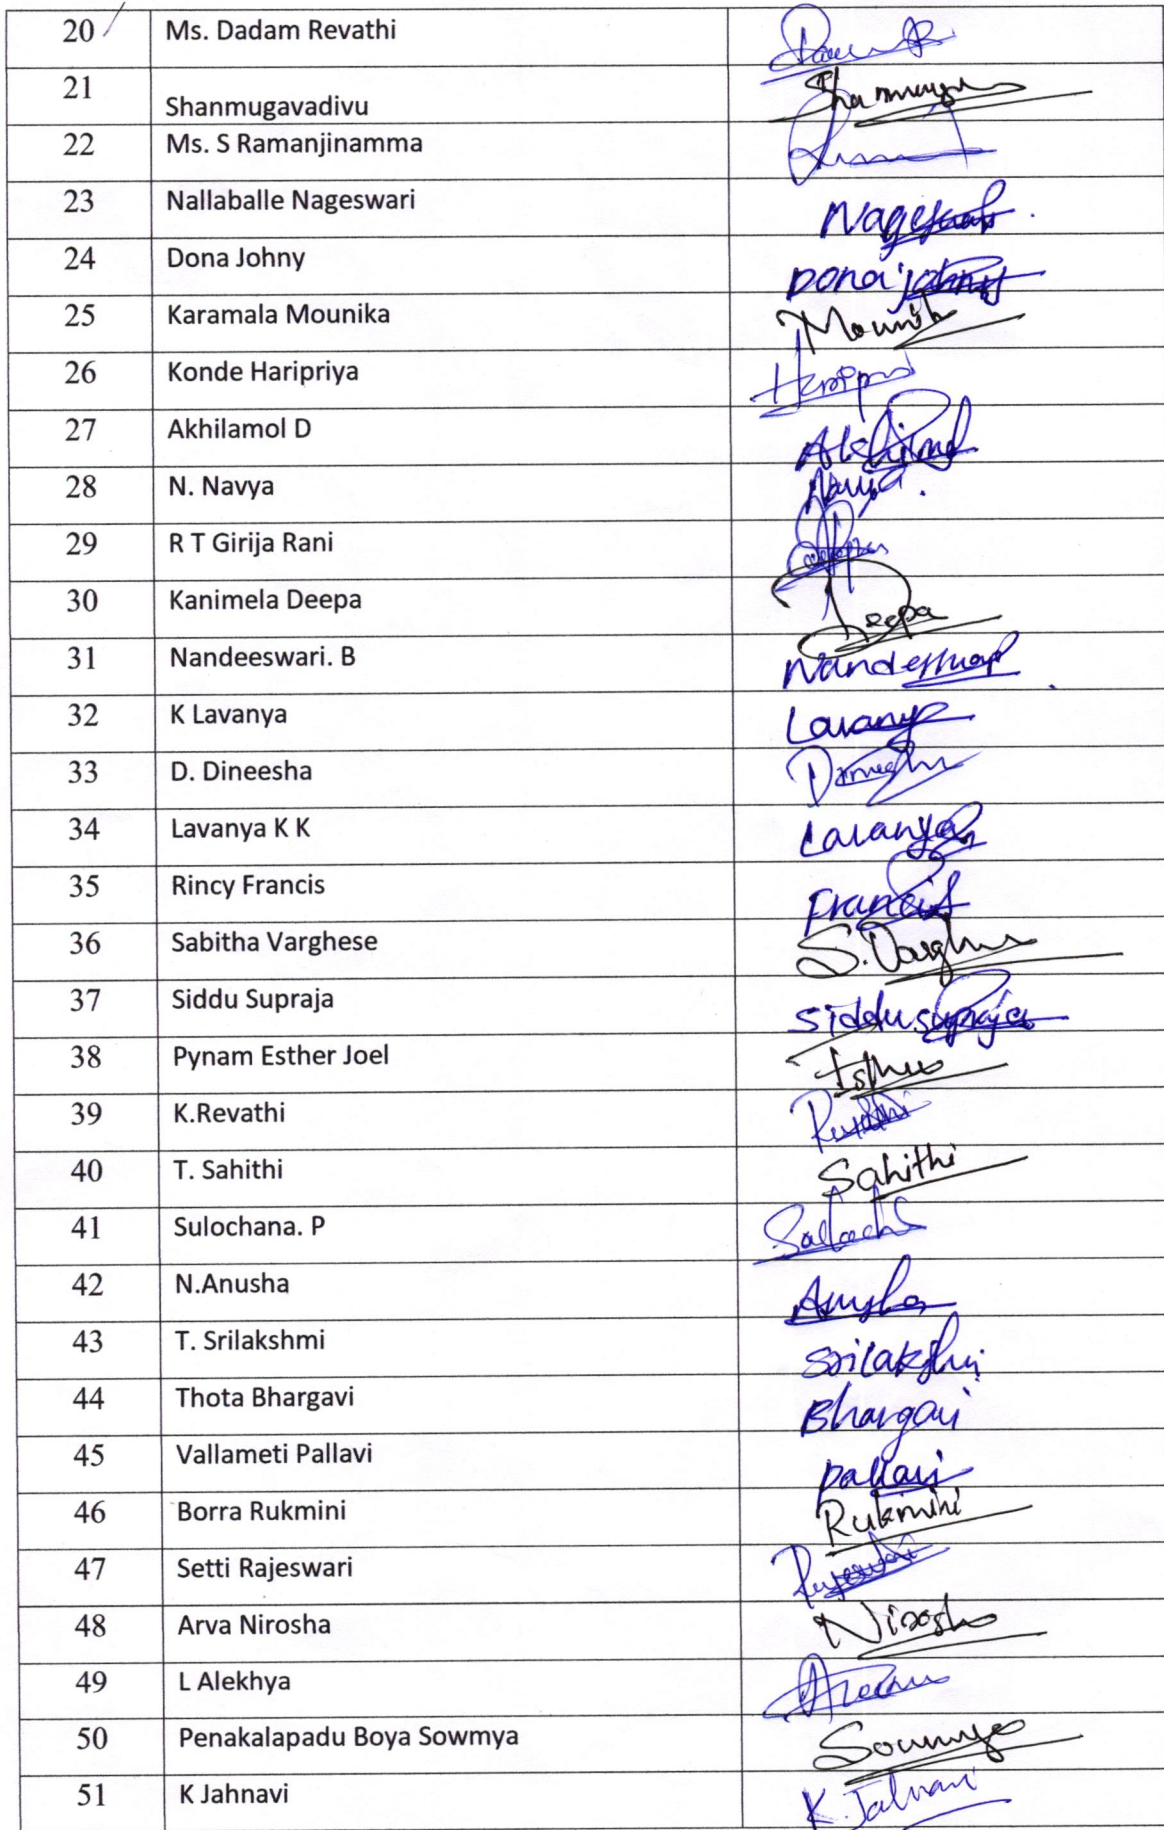 20 Ms. Dadam Revathi
21 Shanmugavadivu Shanmuga
22 Ms. S Ramanjinamma
23 Nallaballe Nageswari
24 Dona Johny Dona Johny
25 Karamala Mounika Mounik
26 Konde Haripriya
27 Akhilamol D
28 N. Navya
29 R T Girija Rani
30 Kanimela Deepa Deepa
31 Nandeeswari. B
32 K Lavanya Lavanya
33 D. Dineesha
34 Lavanya K K Lavanya
35 Rincy Francis Francis
36 Sabitha Varghese
37 Siddu Supraja Siddu Supraja
38 Pynam Esther Joel
39 K.Revathi
40 T. Sahithi Sahithi
41 Sulochana. P
42 N.Anusha Anusha
43 T. Srilakshmi
44 Thota Bhargavi Bhargavi
45 Vallameti Pallavi Pallavi
46 Borra Rukmini Rukmini
47 Setti Rajeswari
48 Arva Nirosha Nirosha
49 L Alekhya
50 Penakalapadu Boya Sowmya Sowmya
51 K Jahnavi K. Jahnavi